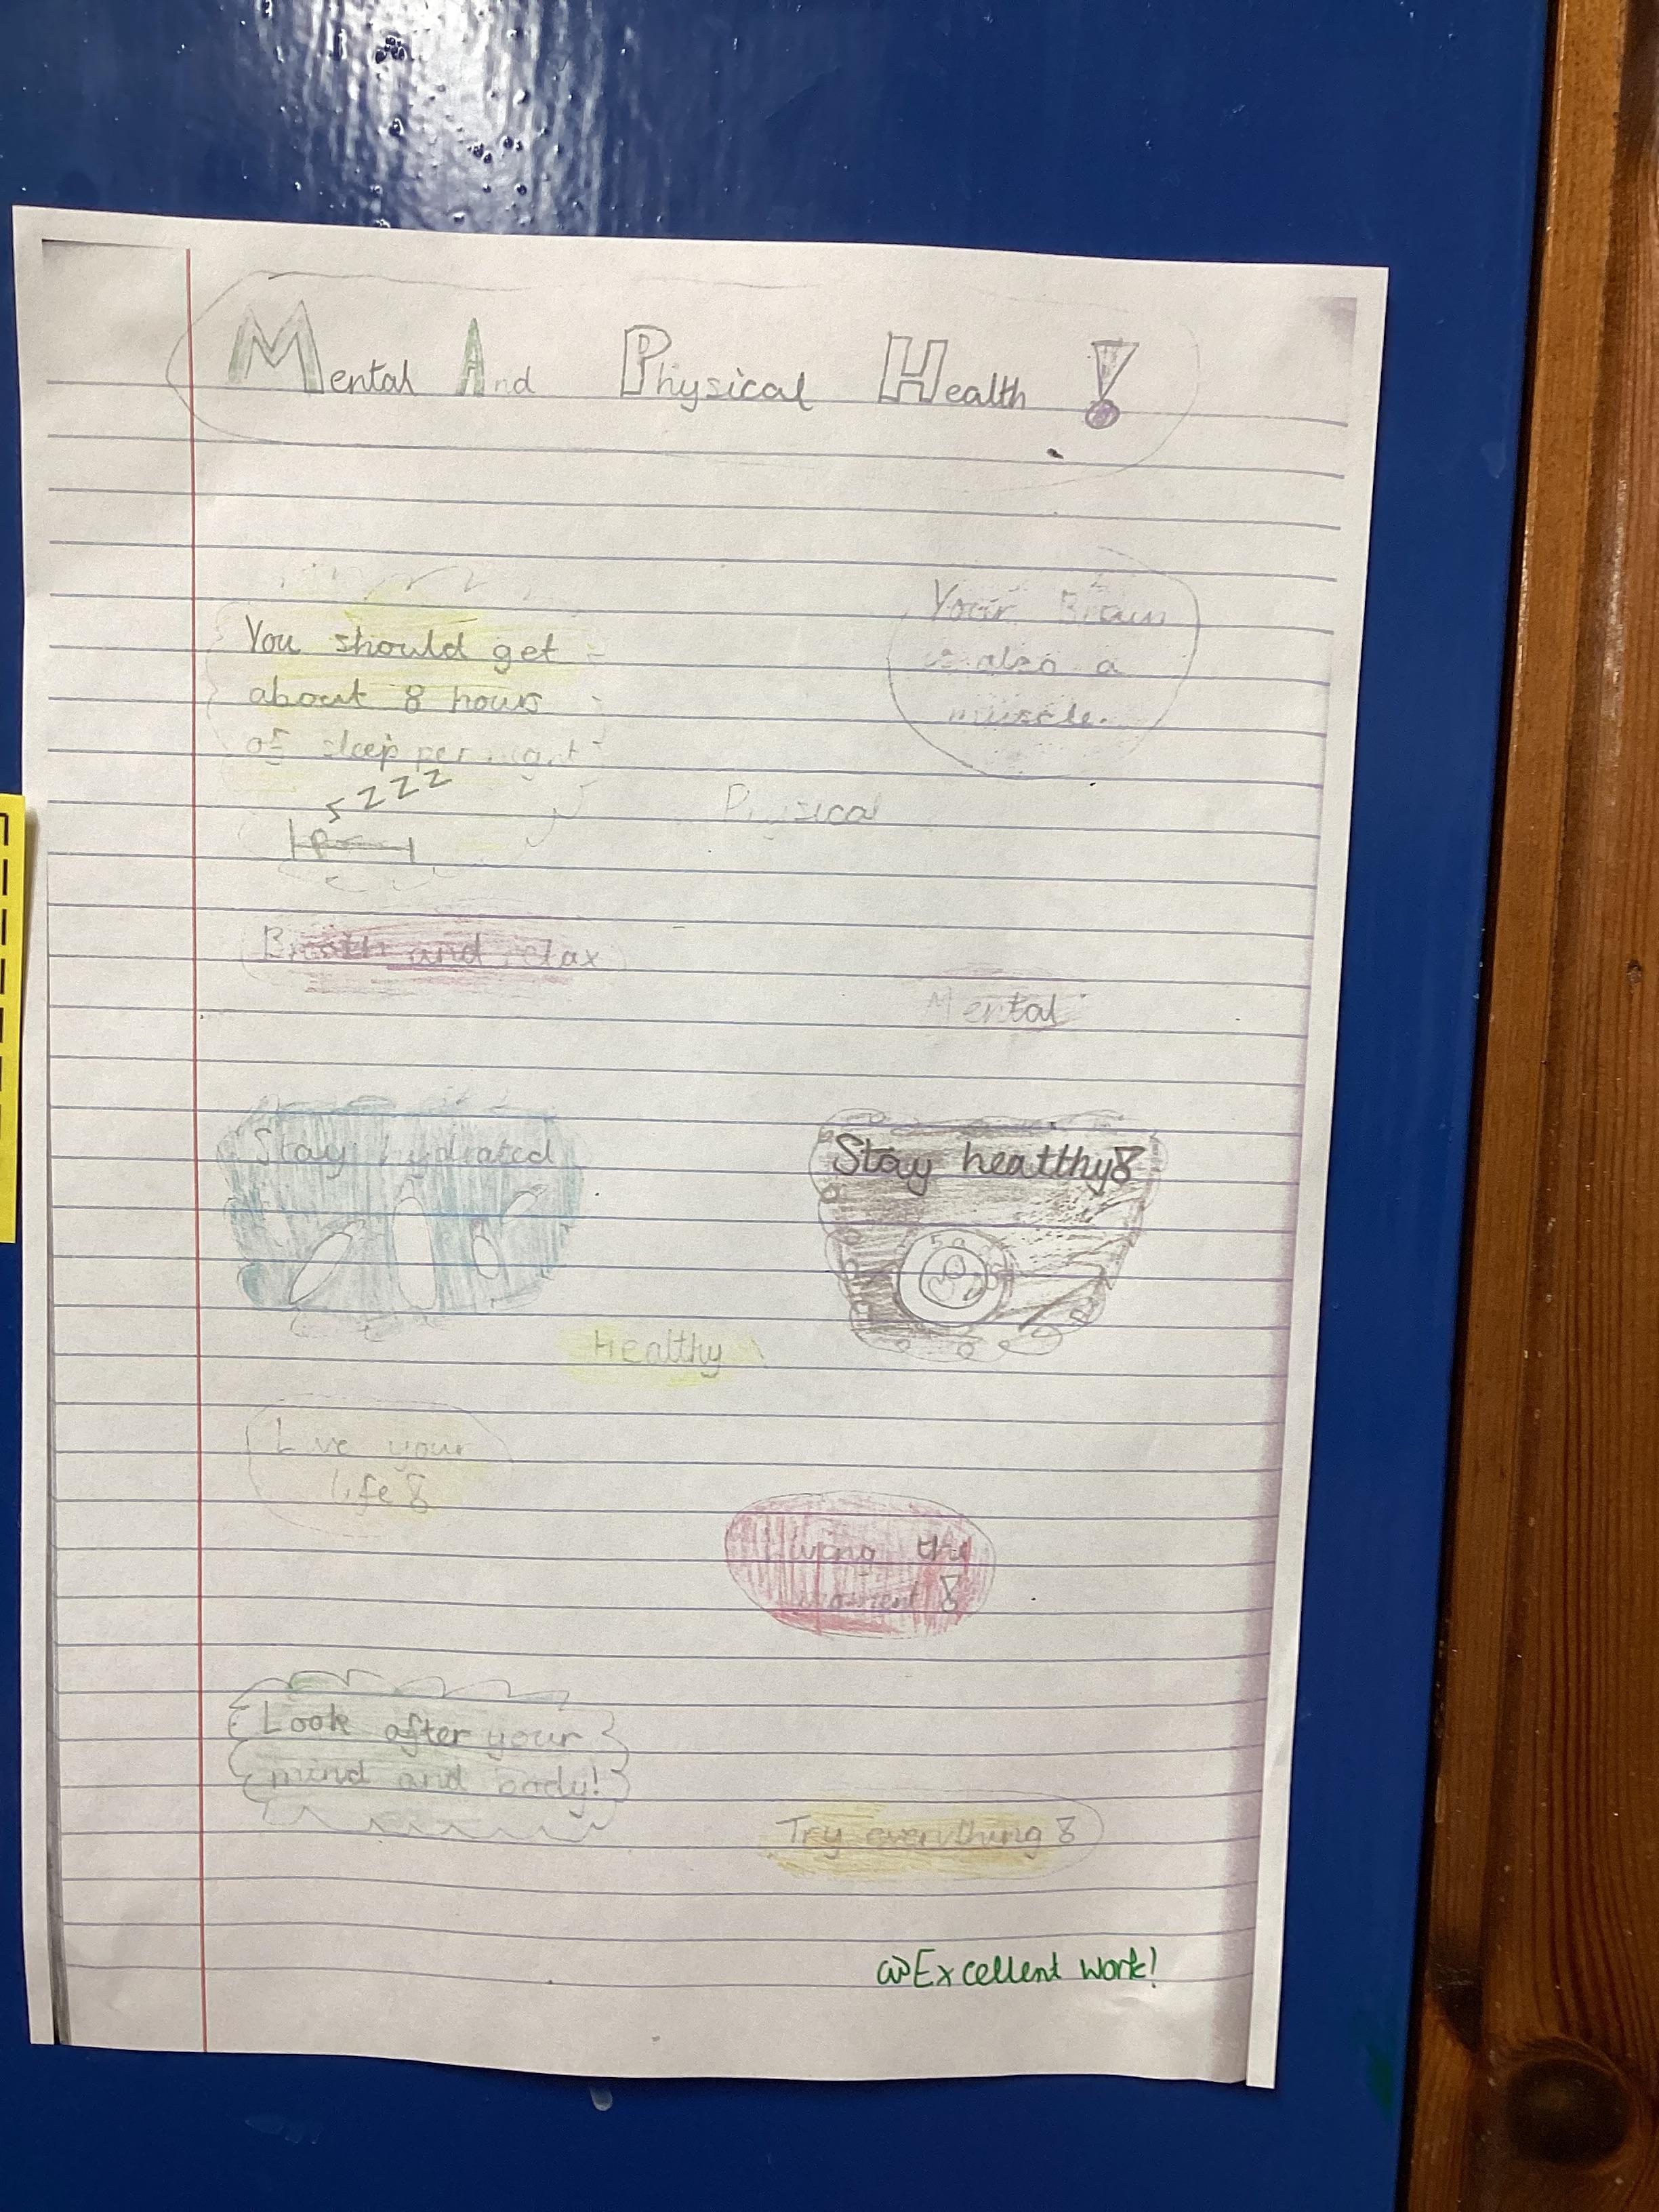 Mental And Physical Health!
You should get
about 8 hours
of sleep per night
zzzz
Your Brain
is also a
muscle.
Physical
Breath and relax
Mental
Stay hydrated
Stay healthy!
Healthy
Live your
life!
the
moment!
Look after your
mind and body!
Try everything!
Excellent work!